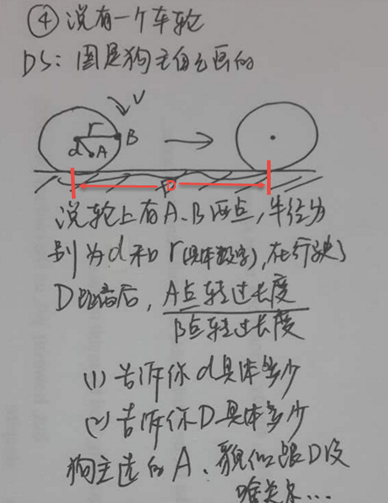 ④ 说有一个车轮
DS: 图是狗主自己画的
V
r
B
d
A
D
说轮上有A、B两点,半径分
别为d和r(具体数字),在行驶了
D距离后, A点转过长度
B点转过长度
(1) 告诉你d具体多少
(2) 告诉你D具体多少
狗主选的A、貌似跟D没
啥关系...